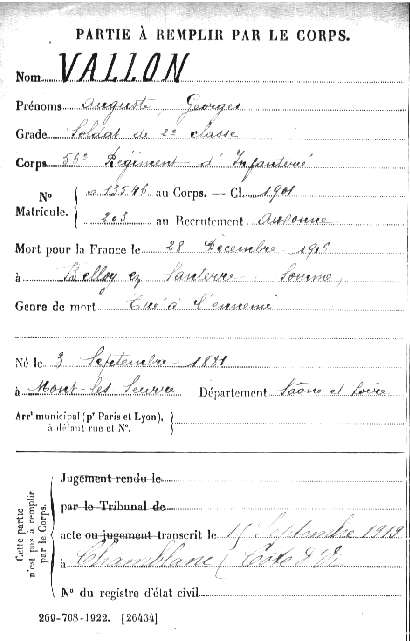 PARTIE À REMPLIR PAR LE CORPS.
Nom VALLON
Prénoms Auguste, Georges
Grade Soldat de 2e classe
Corps 56e Régiment d'Infanterie
N° Matricule. 13596 au Corps. — Cl. 1901
203 au Recrutement Auxonne
Mort pour la France le 28 Décembre
à Belloy en Santerre Somme,
Genre de mort Tué à l'ennemi
Né le 3 Septembre 1881
à Mont-les-Seurre Département Saône et Loire
Arrt municipal (pr Paris et Lyon), à défaut rue et N°.
Cette partie n'est pas à remplir par le Corps.
Jugement rendu le
par le Tribunal de
acte ou jugement transcrit le Septembre 1919
à Chamblanc (Côte d'Or)
N° du registre d'état civil
269-708-1922. [26434]